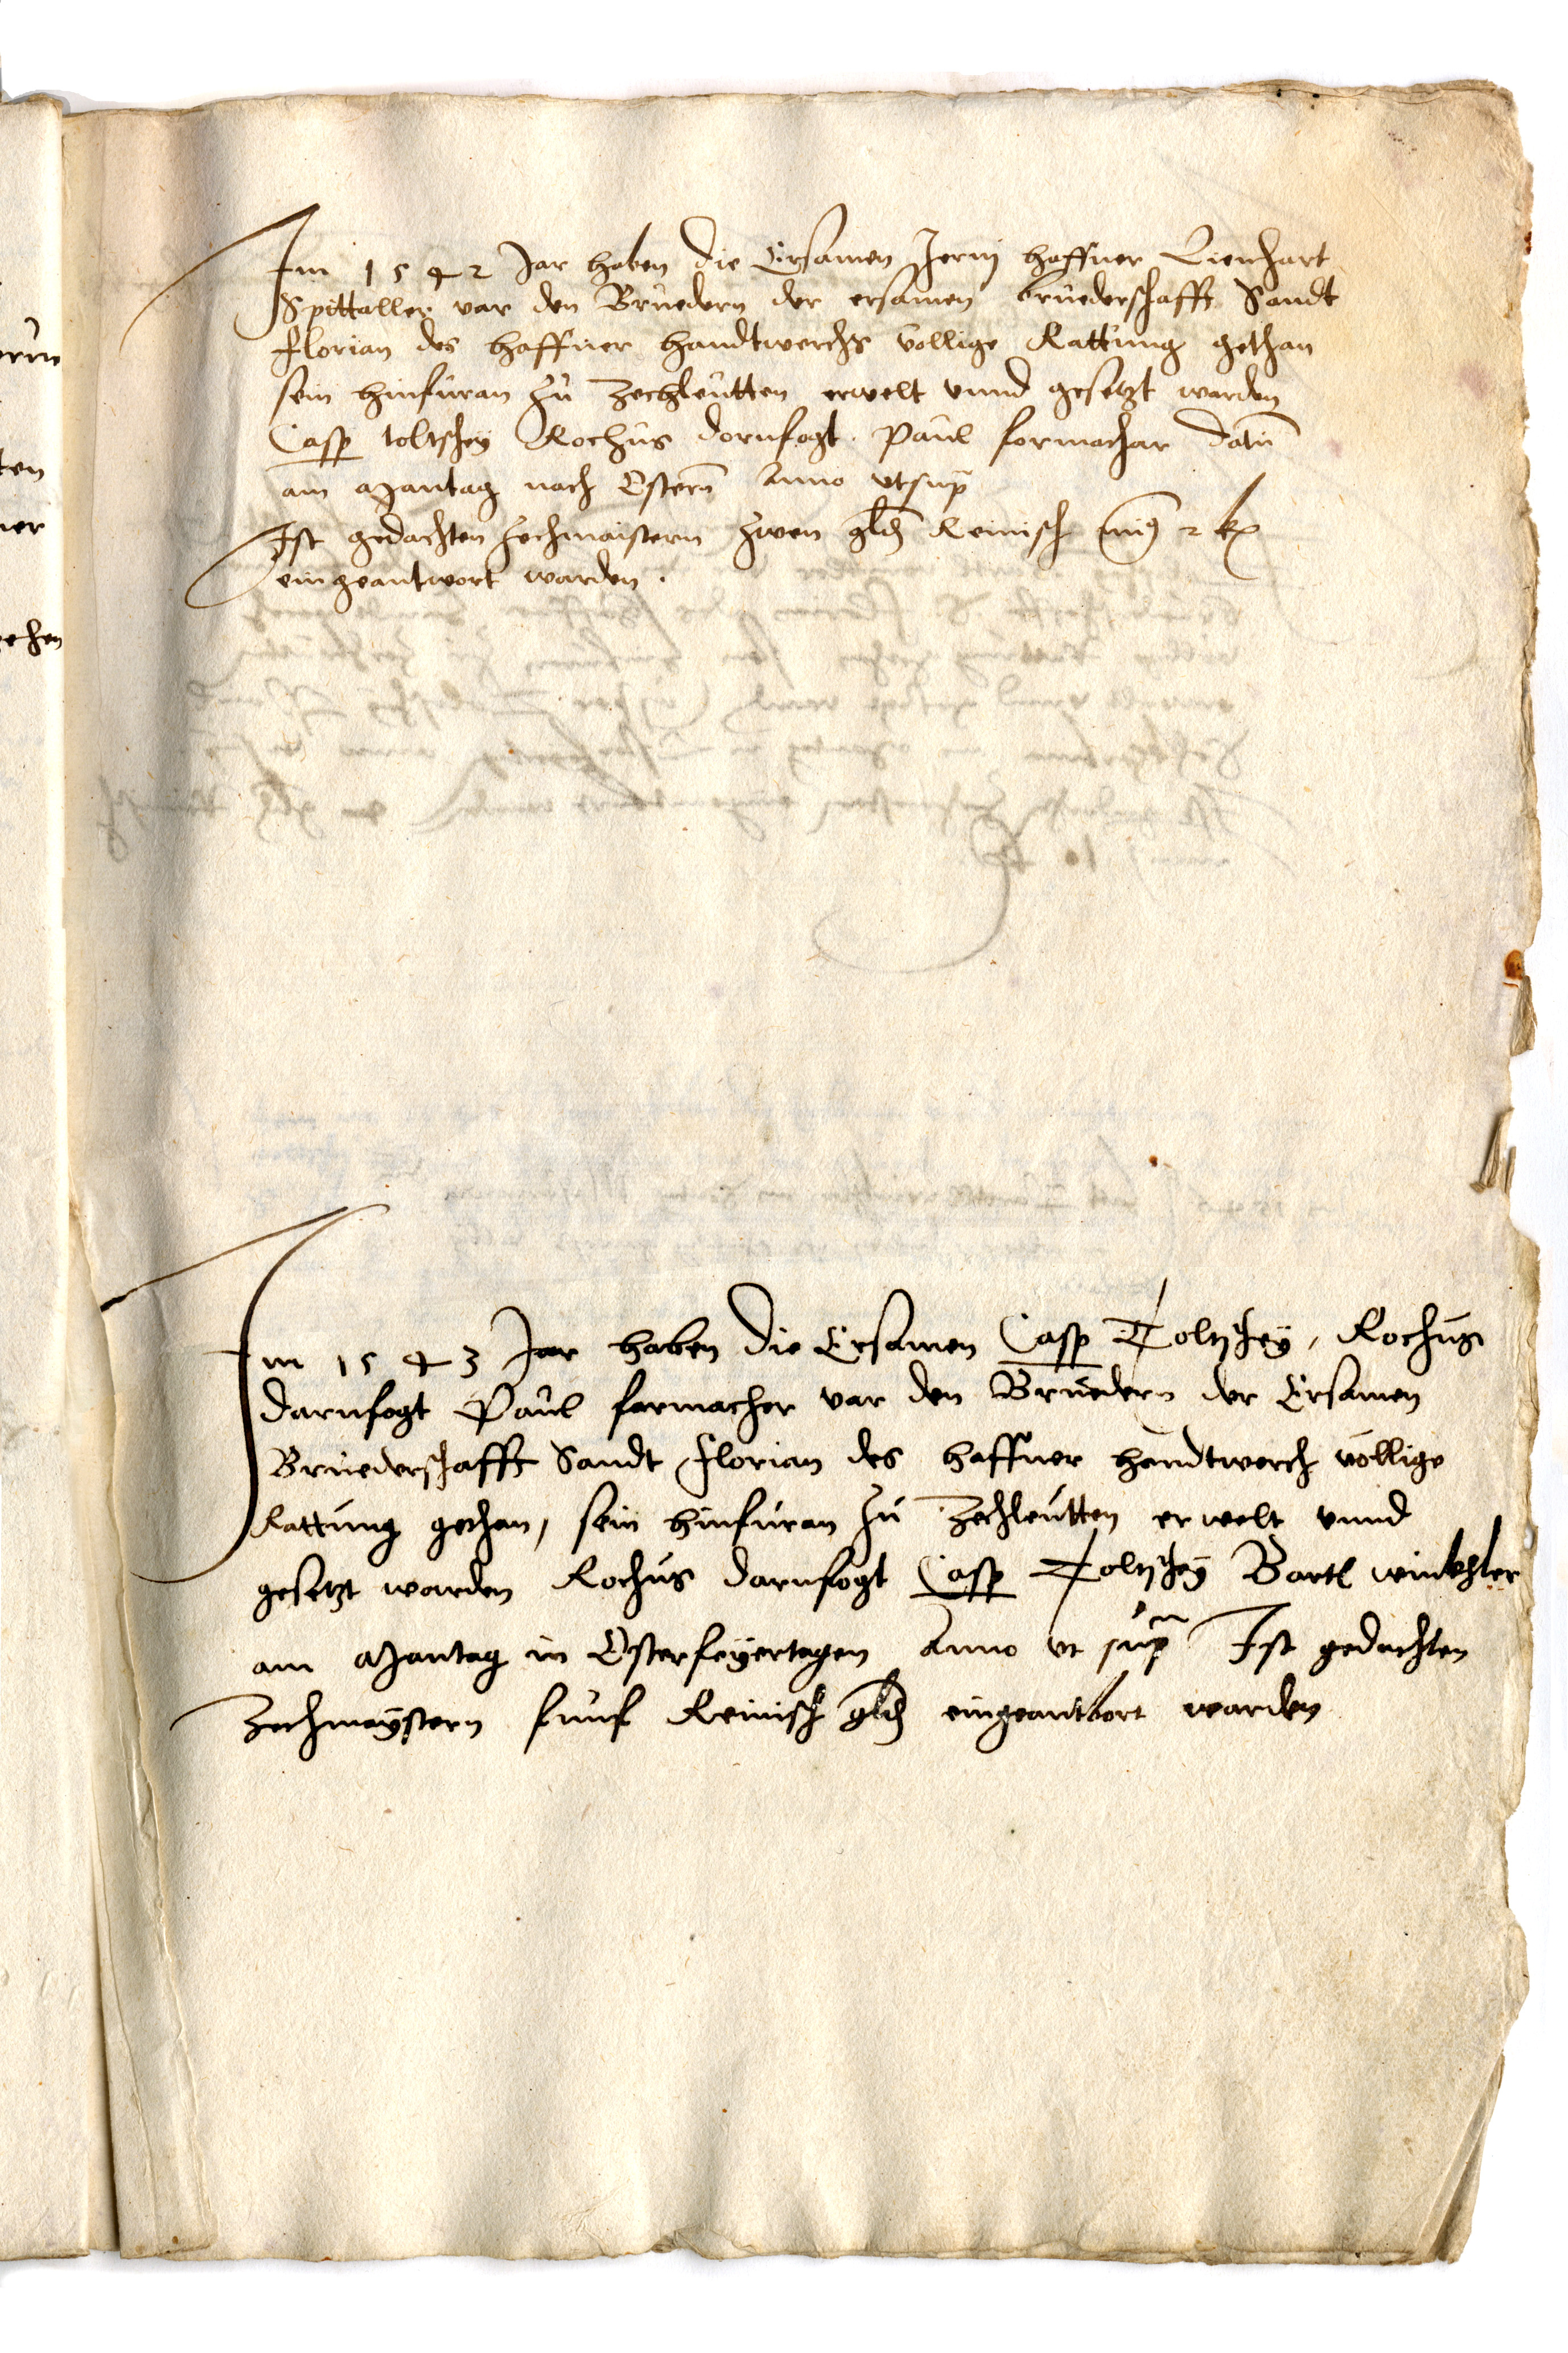 Im 1542 Jar haben die Ersamen Jerinj haffner Lienhart
Spittaller var den Bruedern der ersamen bruederschafft Sandt
Florian des haffner handtwerchs vollige Rattung gethan
sein hinfuran zu Zechleutten erwelt vnnd gesetzt warden
Casp toltschey Rochus dornfogt. Paul formachar datu
am Mantag nach Ostern Anno vtsup
Ist gedachten Zechmaistern zwen gld Reinisch 2 k
eingeantwort warden.
Im 1543 Jar haben die Ersamen Casp Toltschey, Rochus
darnfogt Paul formacher var den Bruedern der Ersamen
Bruederschafft Sandt Florian des haffner handtwerch vollige
Rattung gethan, sein hinfuran zu Zechleutten erwelt vnnd
gesetzt warden Rochus darnfogt Casp Toltschey Bartl winkhler
am Mantag in Osterfeyertagen Anno vt sup Ist gedachten
Zechmaystern funf Reinisch gld eingeantbort warden